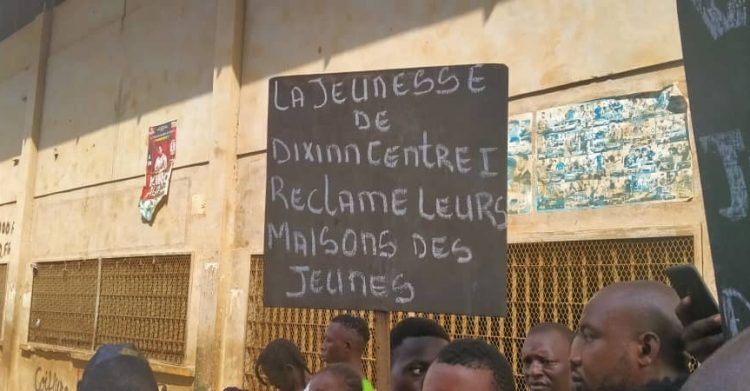 LA JEUNESSE
DE
DIXINN CENTRE I
RECLAME LEURS
MAISONS DES
JEUNES